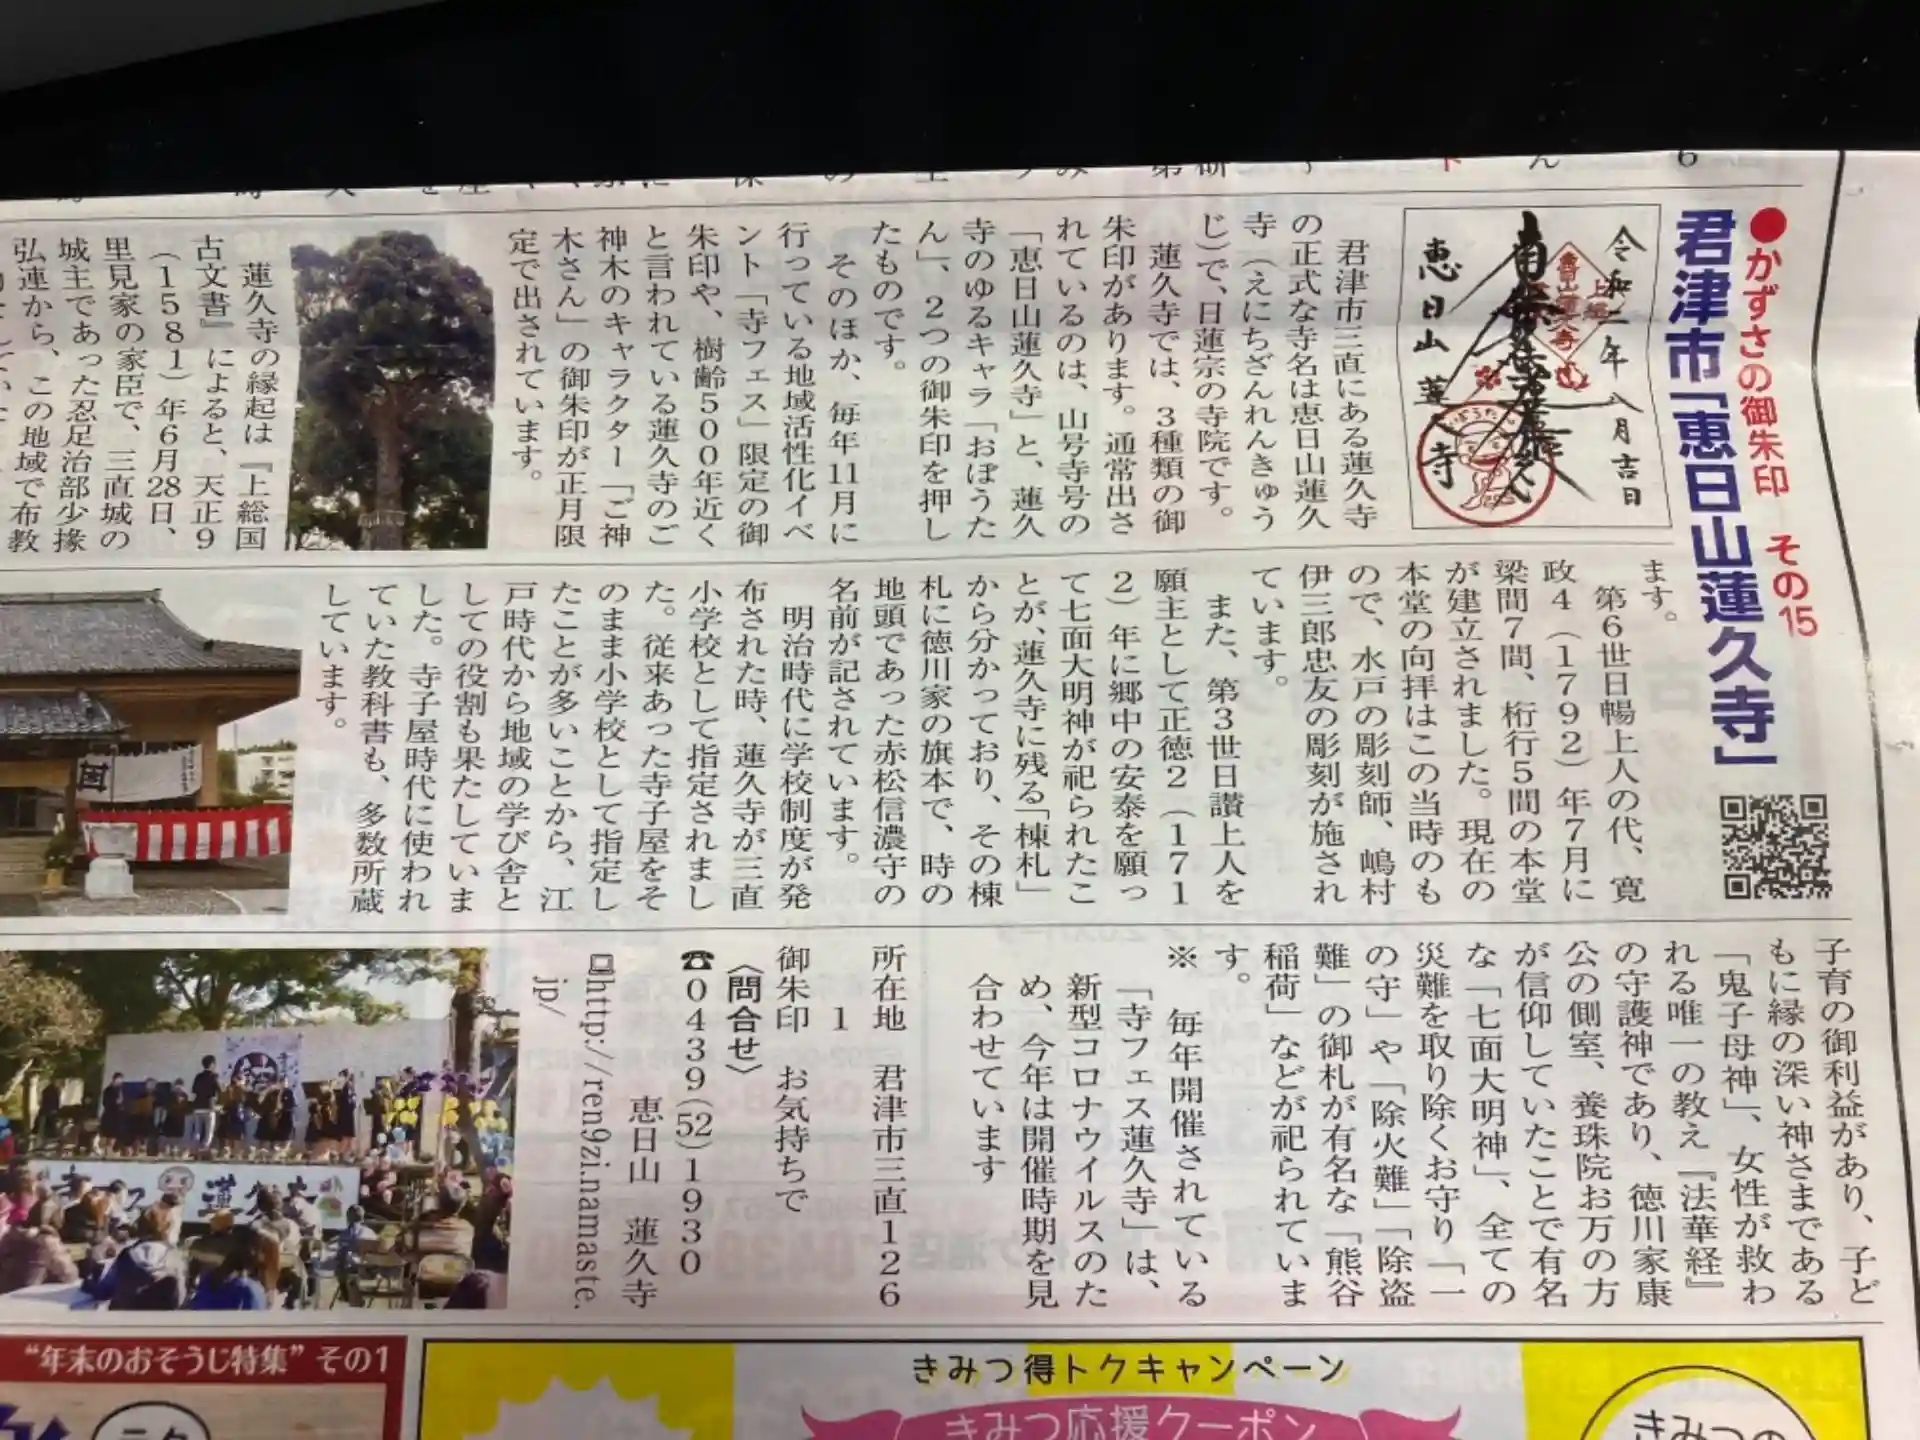 ●かずさの御朱印 その15
君津市「恵日山蓮久寺」
令和二年八月吉日
恵日山 蓮久寺
君津市三直にある蓮久寺
の正式な寺名は恵日山蓮久
寺(えにちざんれんきゅう
じ)で、日蓮宗の寺院です。
蓮久寺では、3種類の御
朱印があります。通常出さ
れているのは、山号寺号の
「恵日山蓮久寺」と、蓮久
寺のゆるキャラ「おぼうた
ん」、2つの御朱印を押し
たものです。
そのほか、毎年11月に
行っている地域活性化イベ
ント「寺フェス」限定の御
朱印や、樹齢500年近く
と言われている蓮久寺のご
神木のキャラクター「ご神
木さん」の御朱印が正月限
定で出されています。
蓮久寺の縁起は『上総国
古文書』によると、天正9
(1581)年6月28日、
里見家の家臣で、三直城の
城主であった忍足治部少掾
弘連から、この地域で布教
ます。
第6世日暢上人の代、寛
政4(1792)年7月に
梁間7間、桁行5間の本堂
が建立されました。現在の
本堂の向拝はこの当時のも
ので、水戸の彫刻師、嶋村
伊三郎忠友の彫刻が施され
ています。
また、第3世日讃上人を
願主として正徳2(171
2)年に郷中の安泰を願っ
て七面大明神が祀られたこ
とが、蓮久寺に残る「棟札」
から分かっており、その棟
札に徳川家の旗本で、時の
地頭であった赤松信濃守の
名前が記されています。
明治時代に学校制度が発
布された時、蓮久寺が三直
小学校として指定されまし
た。従来あった寺子屋をそ
のまま小学校として指定し
たことが多いことから、江
戸時代から地域の学び舎と
しての役割も果たしていま
した。寺子屋時代に使われ
ていた教科書も、多数所蔵
しています。
子育の御利益があり、子ど
もに縁の深い神さまである
「鬼子母神」、女性が救わ
れる唯一の教え『法華経』
の守護神であり、徳川家康
公の側室、養珠院お万の方
が信仰していたことで有名
な「七面大明神」、全ての
災難を取り除くお守り「一
の守」や「除火難」「除盗
難」の御札が有名な「熊谷
稲荷」などが祀られていま
す。
※ 毎年開催されている
「寺フェス蓮久寺」は、
新型コロナウイルスのた
め、今年は開催時期を見
合わせています
所在地 君津市三直126
1
御朱印 お気持ちで
〈問合せ〉
☎0439(52)1930
恵日山 蓮久寺
http://ren9zi.namaste.
jp/
“年末のおそうじ特集”その1
きみつ得トクキャンペーン
きみつ応援クーポン
きみつの